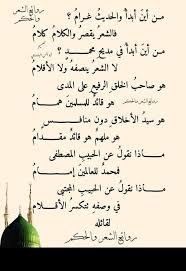 روائع الشعر والحكم
من أين أبدأ والحديث غرام ؟
فالشعر يقصر والكلام كلام
من أين أبدأ في مديح محمد ؟
لا الشعر ينصفه ولا الأقلام
هو صاحب الخلق الرفيع على المدى
هو قائد للمسلمين همام
روائع الشعر والحكم
هو سيد الأخلاق دون منافس
هو ملهم هو قائد مقدام
ماذا نقول عن الحبيب المصطفى
فمحمد للعالمين إمام
ماذا نقول عن الحبيب المجتبى
في وصفه تتكسر الأقلام
لقائله
روائع الشعر والحكم